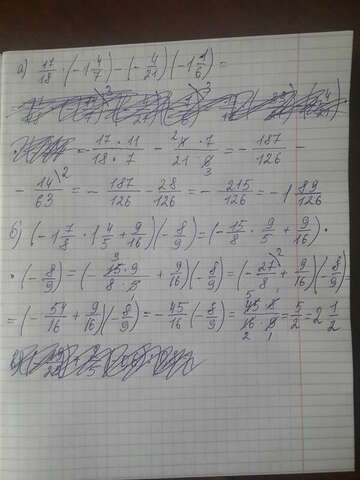 а) 17/18 · (-1 4/7) - (-4/21)(-1 1/6) =
= - 17 · 11 / 18 · 7 - 4 · 7 / 21 · 6 = - 187/126 -
- 14/63 = - 187/126 - 28/126 = - 215/126 = -1 89/126
б) (-1 7/8 · 1 4/5 + 9/16)(-8/9) = (-15/8 · 9/5 + 9/16) ·
· (-8/9) = (- 15 · 9 / 8 · 5 + 9/16)(-8/9) = (-27/8 + 9/16)(-8/9) =
= (-54/16 + 9/16)(-8/9) = -45/16 (-8/9) = 45 · 8 / 16 · 9 = 5/2 = 2 1/2